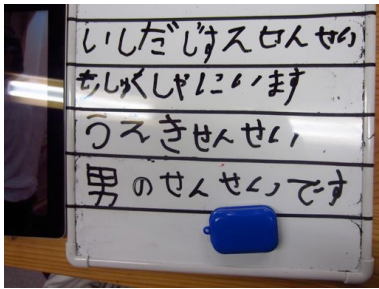 いしだじすえせんせい
ちしゃくしゃにいます
うえきせんせい
男のせんせいです